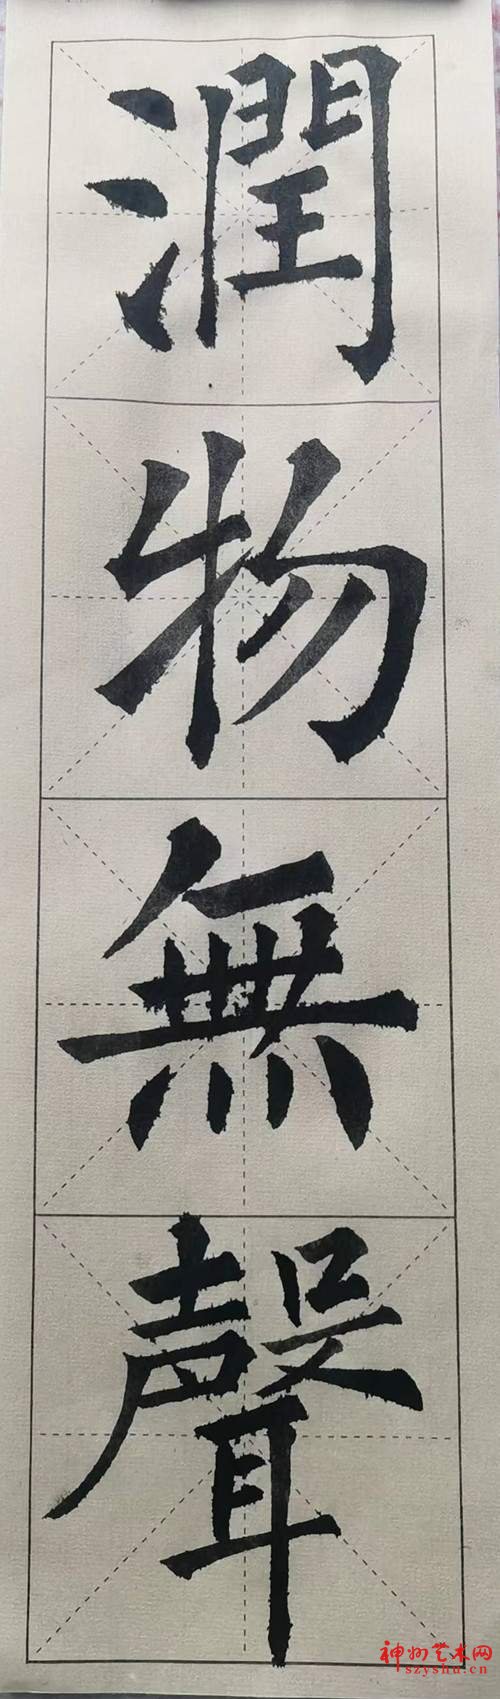 潤物無聲
神州艺术网
szyshu.cn